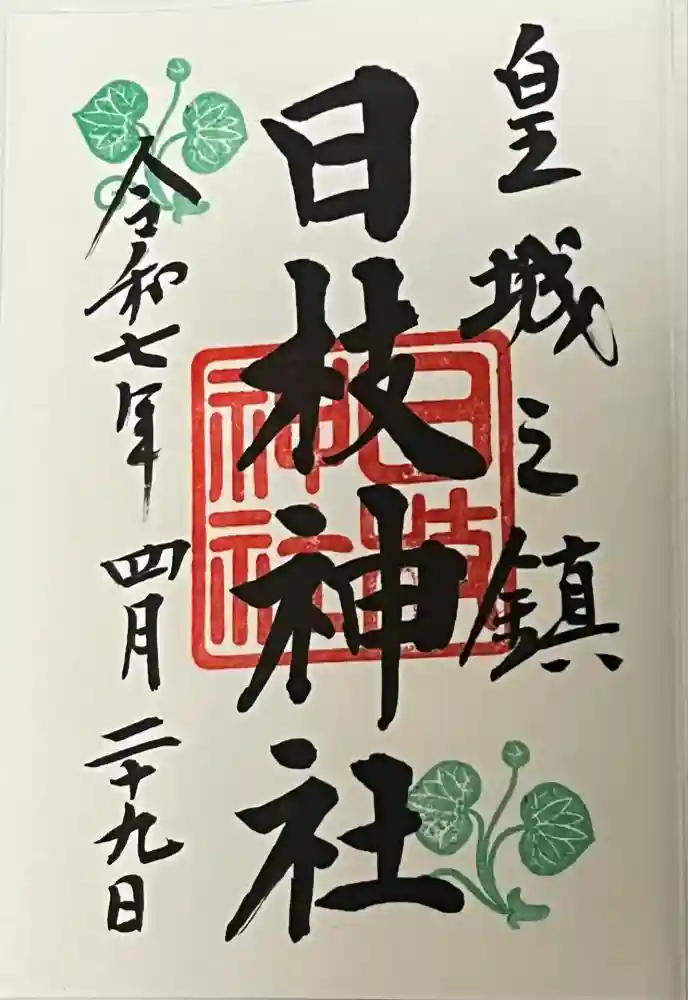 皇城之鎮
日枝神社
日枝神社
令和七年四月二十九日